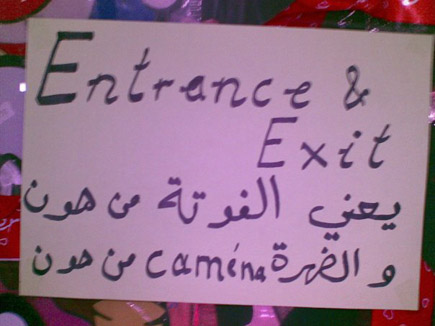 Entrance &
Exit
يعني الفوتة من هون
و الضهرة caména من هون